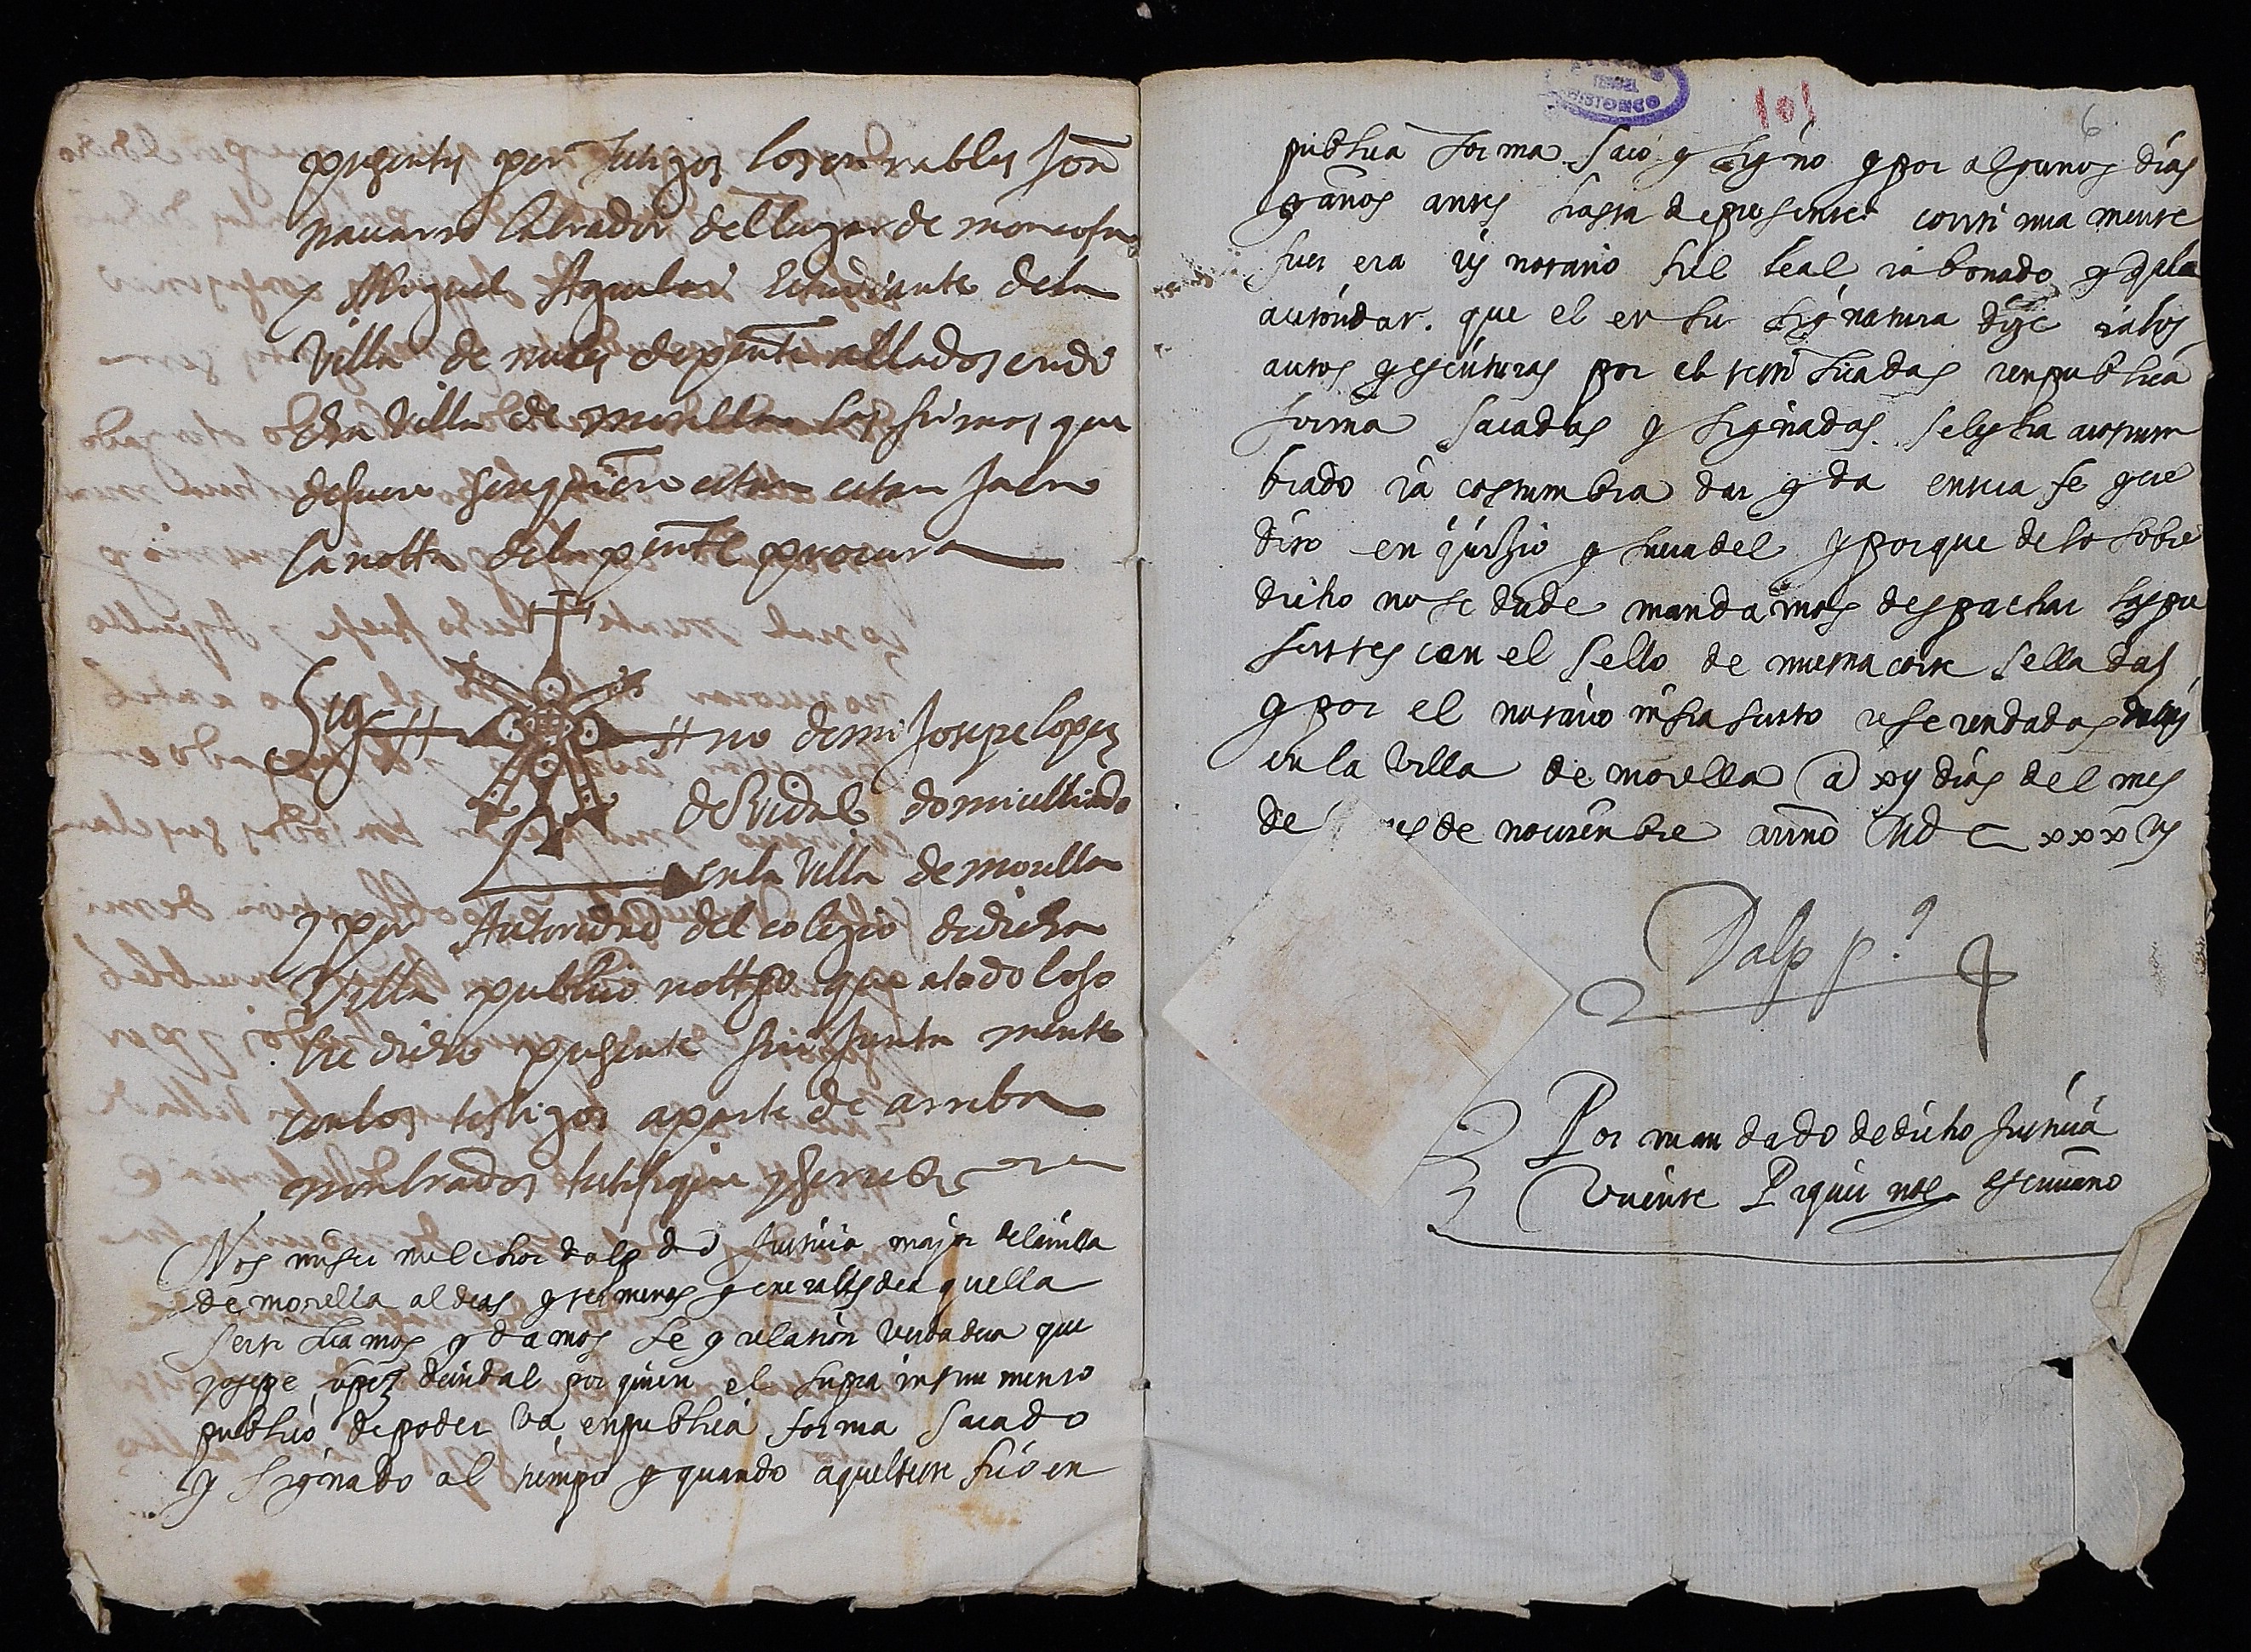 presentes por testigos los onrables Joan
navarro labrador del lugar de moncofar
y Miguel Aguilar Estudiante dela
Villa de nules de pente allados en di
cha villa de morella las firmas que
de fuero se requieren estan en
la notta dela pente procura
Sig no de mi Josepe lopez
de Vidal domicilliado
en la Villa de morella
y por Autoridad del colegio de dicha
Villa publico nottro que atodo loso
bre dicho presente fui Junta mente
con los testigos aparte de arriba
nombrados testifique y
Nos miser melchor dalp Justicia major dela villa
de morella aldeas y terminos generales de a quella
Certi ficamos y damos fe y relation verdadera que
Josepe lopez de vidal por quien el supra instrumento
publico de poder va en publica forma sacado
y signado al tiempo y quando aqueltere fico en
101
6
publica forma saco y signo y por algunos dias
y años antes hasta de presente conti nua mente
fue era y es notario fiel leal i a bonado y dela
autoridat que el en su signatura dize i a los
autos y escrituras por el testi ficadas i en publica
forma sacadas y signadas seles ha acostum
brado i a costumbra dar y da entera fe y cre
dito en juizio y fuera del y porque de lo sobre
dicho no se dude manda mos despachar las pre
sentes con el sello de nuestra corte selladas
y por el notario infra scrito referendadas
en la villa de morella a xy dias del mes
de de nouienbre anno MdCxxxvj
Dalp
Por man dado de dicho Justicia
Vicente Piquer not escriuano